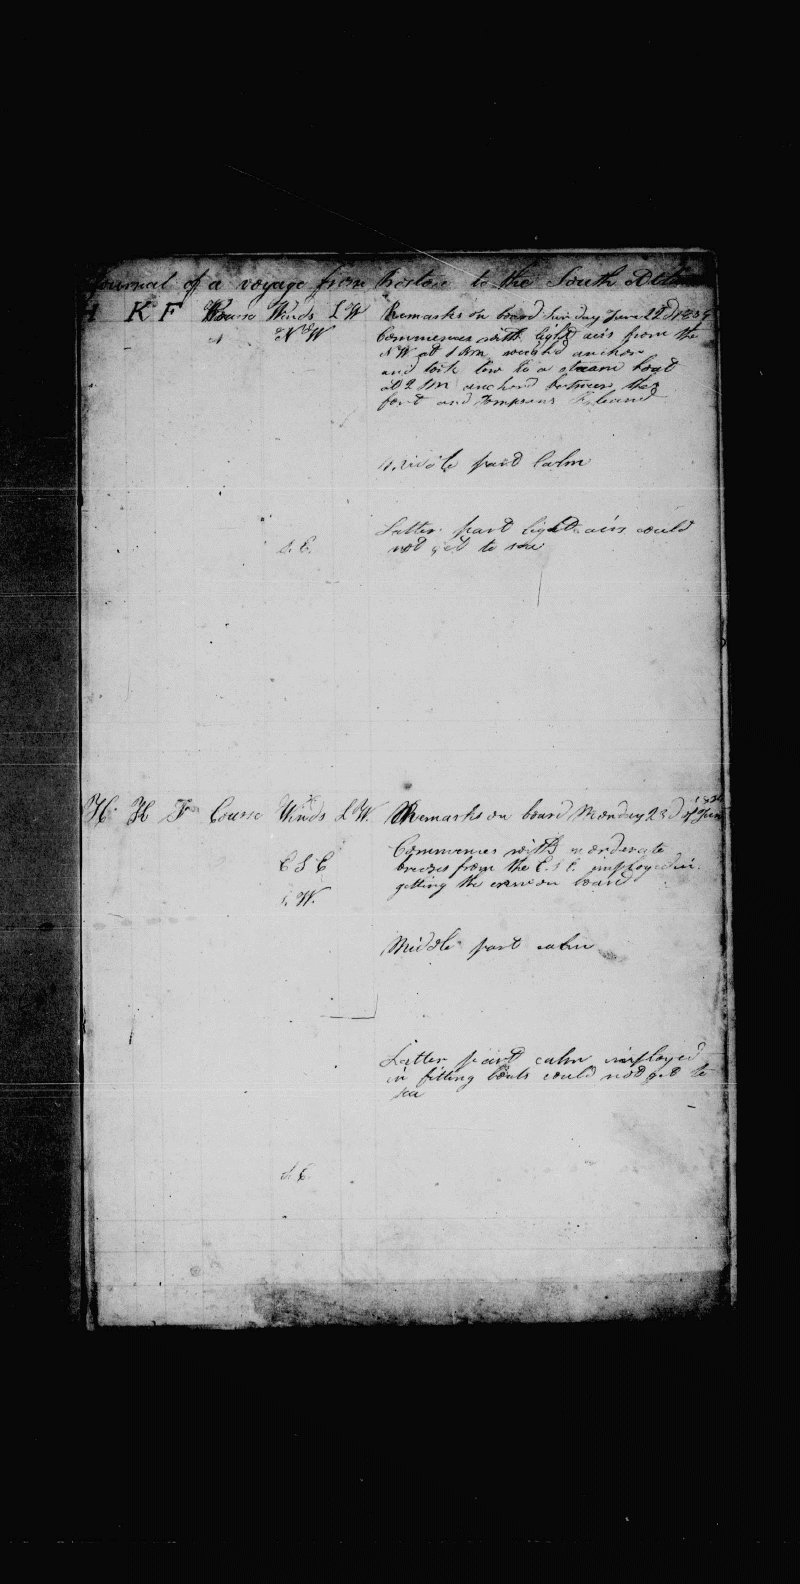 Journal of a voyage from boston to the South Atlan
H K F Course Winds L W Remarks on board Sunday June 22d
N W Commences with light airs from the
N W at 1 PM weighd anchor
and took tow to a steam boat
at 2 PM anchord between the
fort and Tompsons Island
Middle part Calm
Latter part light airs could
S. E. not get to sea
H K F Course Winds L W. Remarks on board Monday 23d of June
Commences with morderate
E S E breezes from the E. S E. imployed in
getting the on board
S. W.
Middle part calm
Latter part calm imployed
in fitting boats could not get to
sea
S. E.